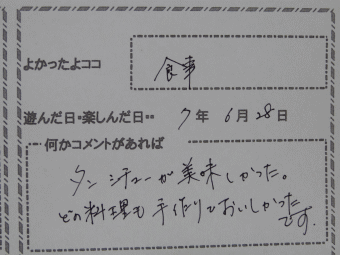 よかったよココ
食事
遊んだ日・楽しんだ日・・ 7年 6月 28日
何かコメントがあれば
タンシチューが美味しかった。
どの料理も手作りでおいしかった
です。